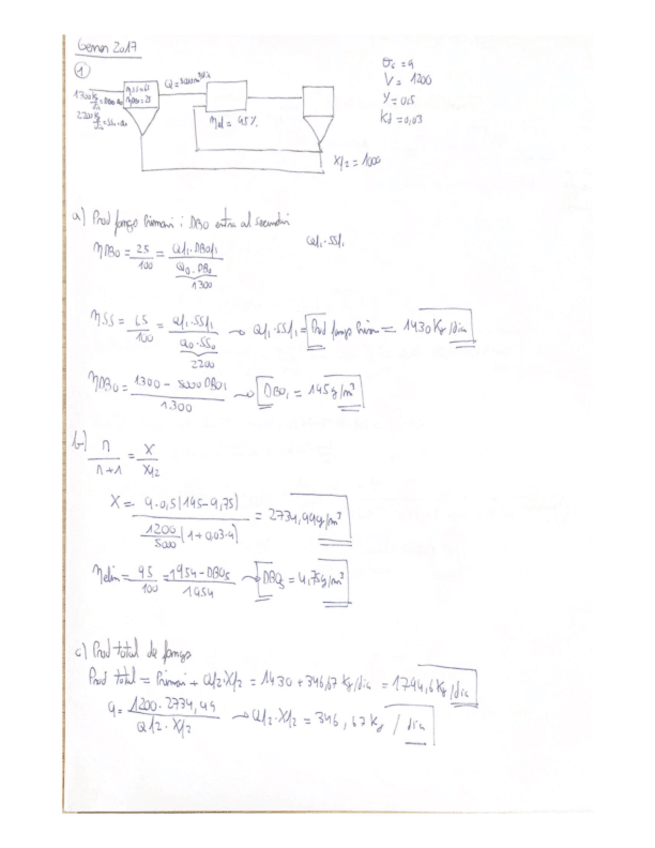 Gener 2017
1
θc = 9
V = 1200
Y = 0,5
Kd = 0,03
1300 Kg/dia = DBO
2200 Kg/dia = SS
ηSS = 65
ηDBO = 25
Q = 5000 m³/dia
ηel = 95%
X/2 = 1000
a) Prod fangs Primari i DBO entra al secundari
ηDBO = 25/100 = Q/1·DBO/1 / Q0·DBO0
1300
Q/1·SS/1
ηSS = 65/100 = Q/1·SS/1 / Q0·SS0 → Q/1·SS/1 = Prod fangs Prim = 1430 Kg/dia
2200
ηDBO = 1300 - 5000 DBO1 / 1300 → DBO1 = 195 g/m³
b) n / n+1 = X / X/2
X = 9·0,5(195-9,75) / 1200/5000 (1+0,03·9) = 2734,99 g/m³
ηelim = 95/100 = 195 - DBO5 / 195 → DBO5 = 9,75 g/m³
c) Prod total de fangs
Prod total = Primari + Q/2·X/2 = 1430 + 346,67 Kg/dia = 1794,6 Kg/dia
9 = 1200·2734,99 / Q/2·X/2 → Q/2·X/2 = 346,67 Kg/dia